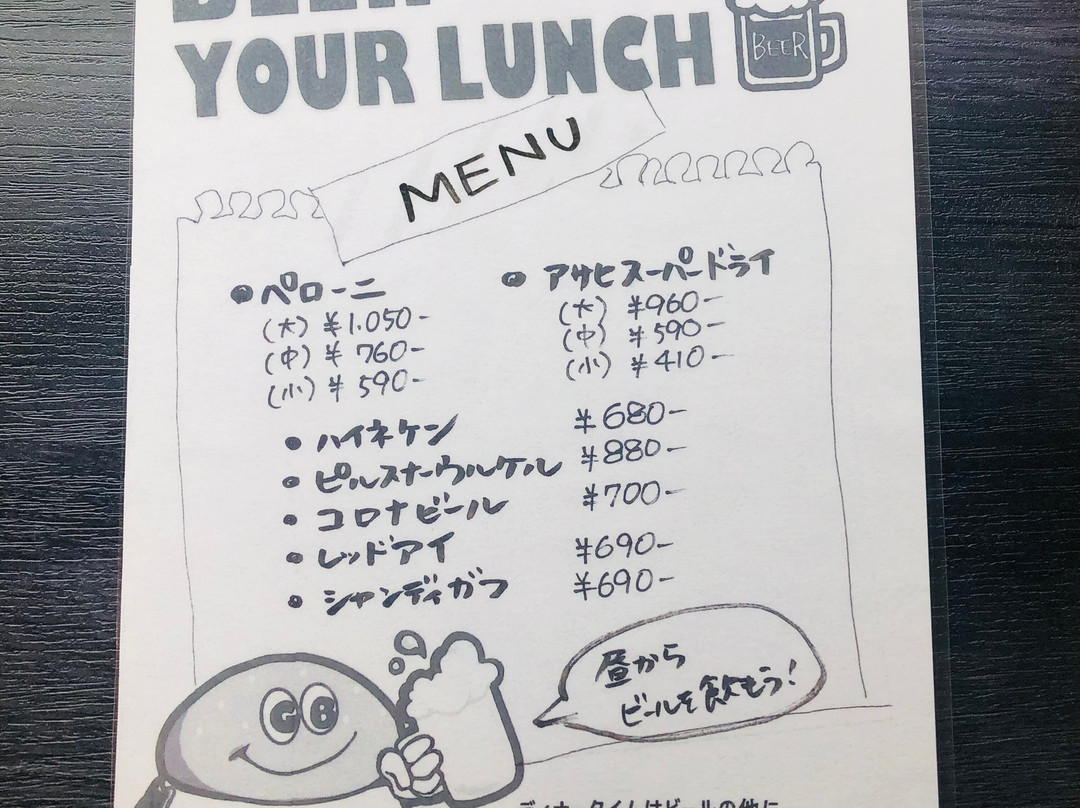 BEER
YOUR LUNCH
BEER
MENU
• ペローニ
(大) ¥1.050-
(中) ¥ 760-
(小) ¥ 590-
• アサヒスーパードライ
(大) ¥960-
(中) ¥590-
(小) ¥410-
• ハイネケン ¥680-
• ピルスナーウルケル ¥880-
• コロナビール ¥700-
• レッドアイ ¥690-
• シャンディガフ ¥690-
昼から
ビールを飲もう!
GB
ディナータイムはビールの他に